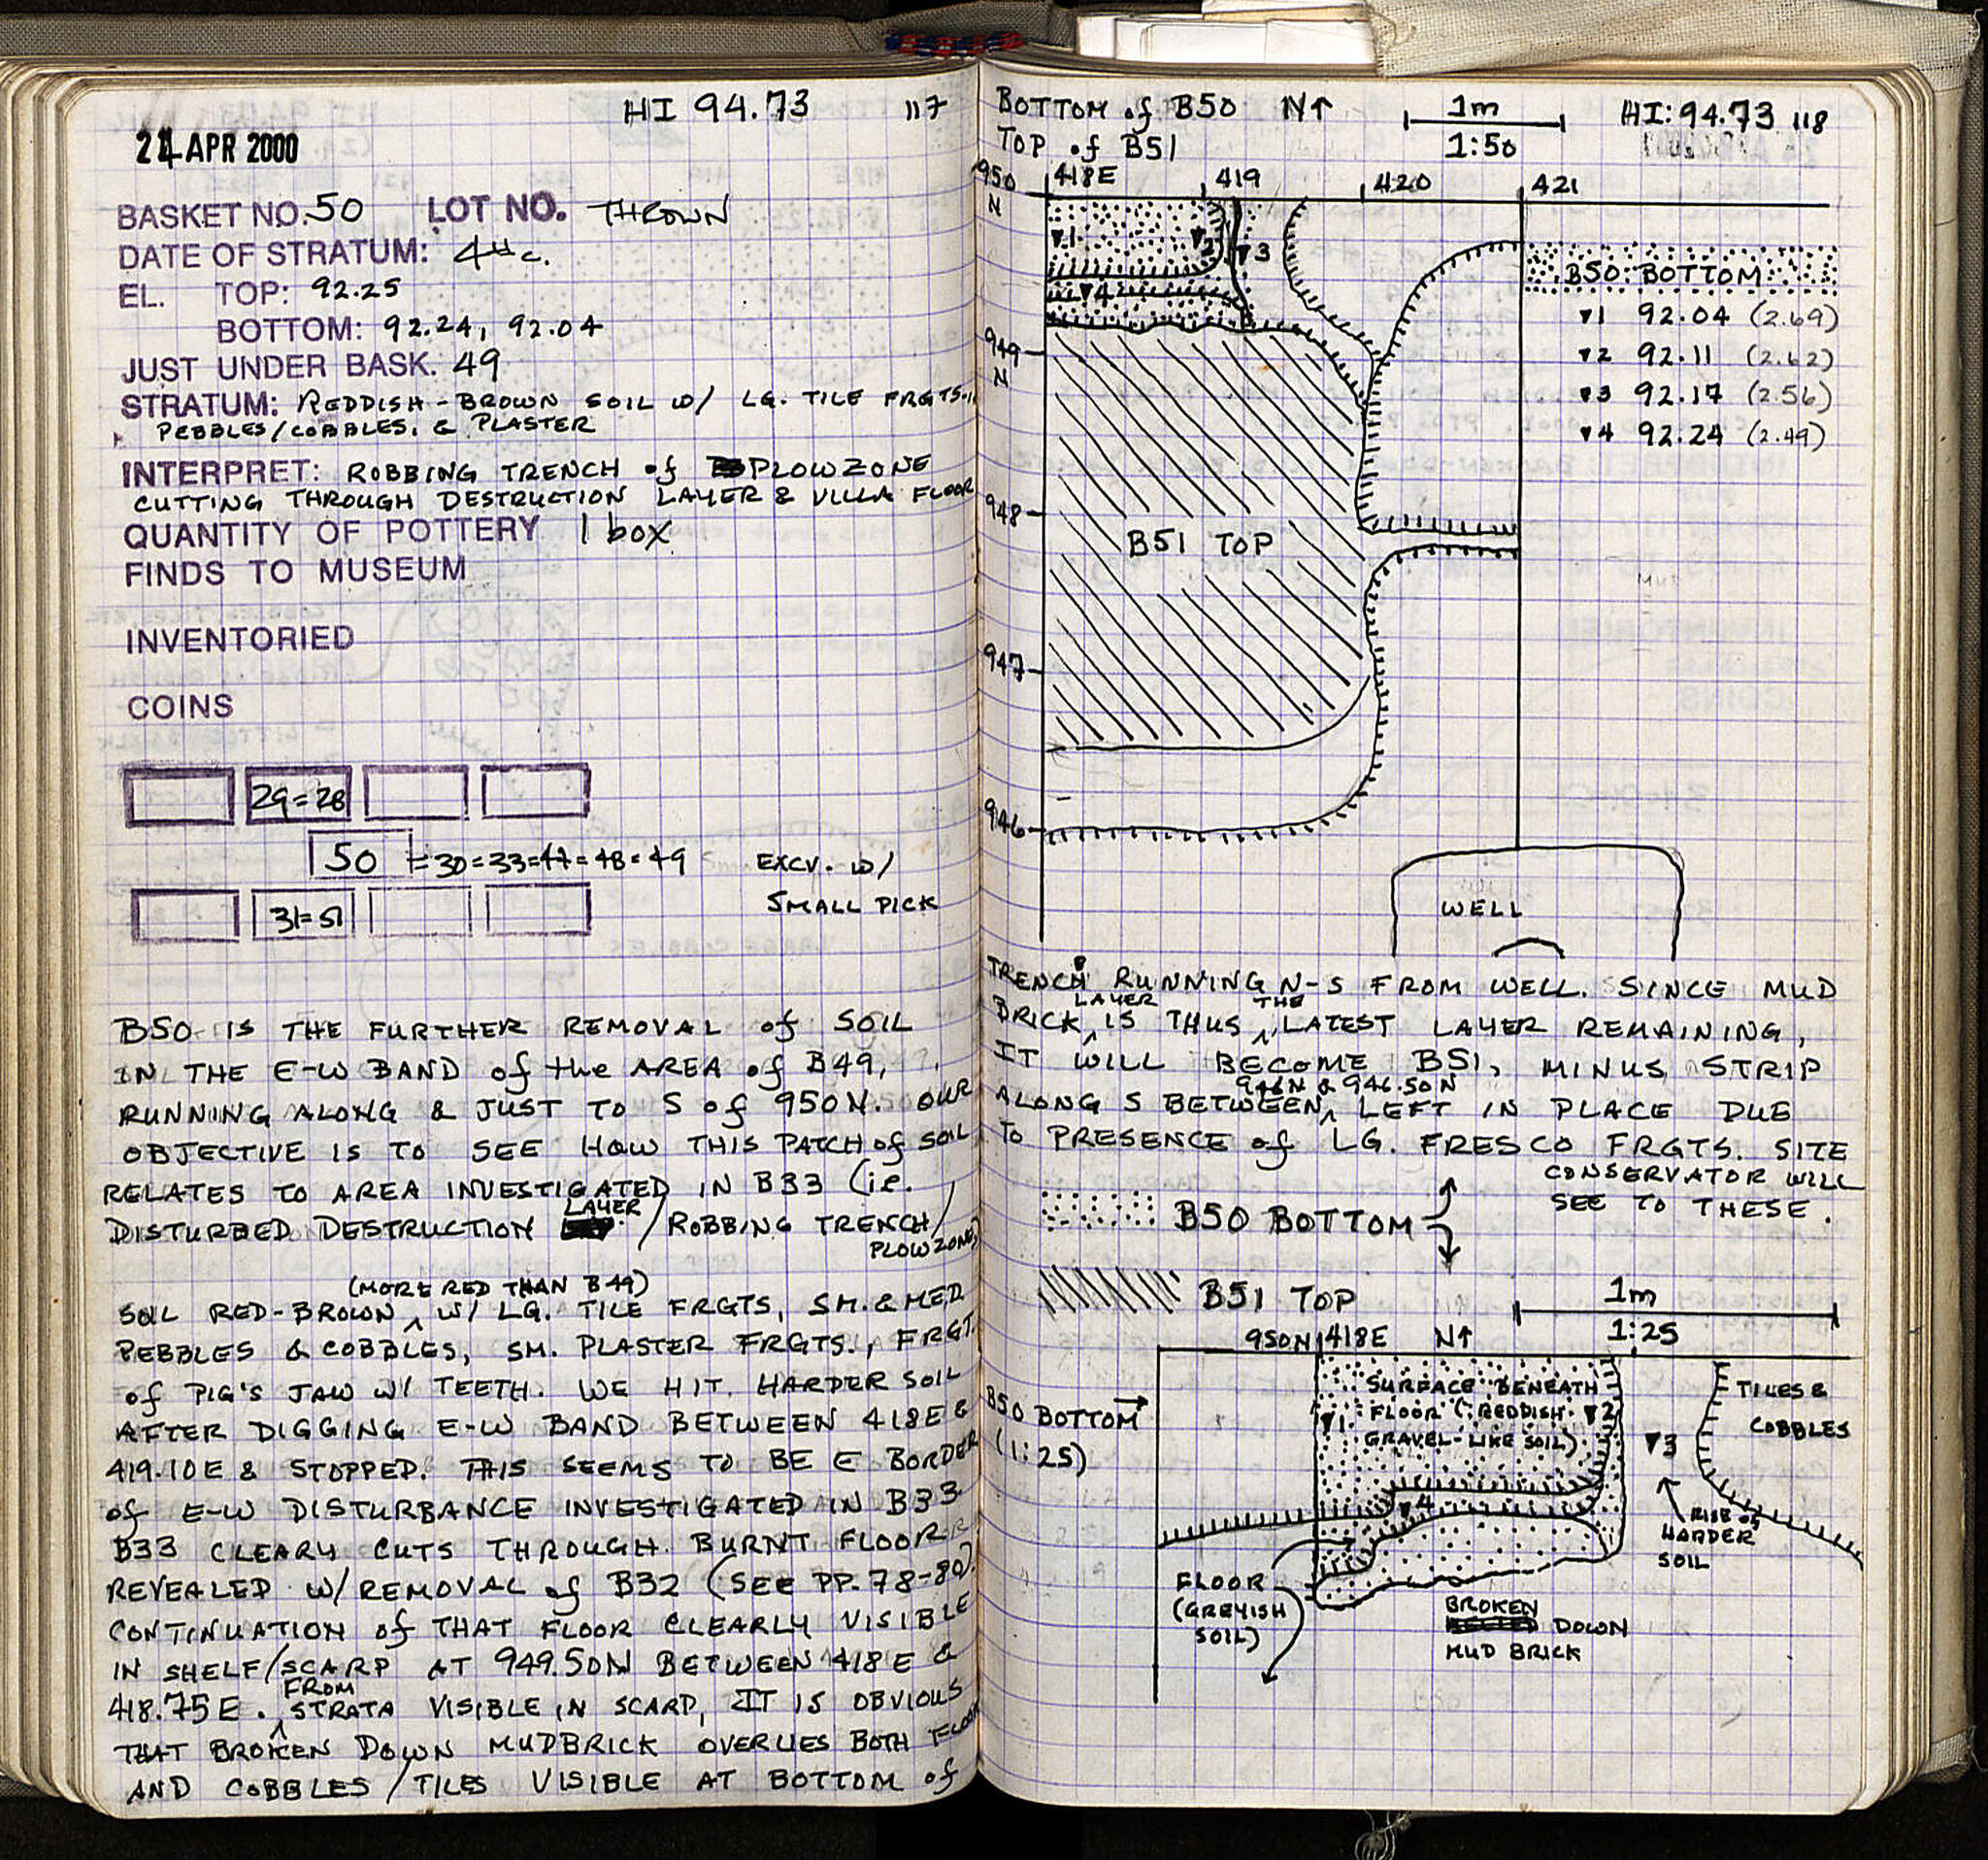 HI 94.73 117
24 APR 2000
BASKET NO. 50 LOT NO. THROWN
DATE OF STRATUM: 4th c.
EL. TOP: 92.25
BOTTOM: 92.24, 92.04
JUST UNDER BASK. 49
STRATUM: REDDISH-BROWN SOIL W/ LG. TILE FRGTS.,
PEBBLES/COBBLES, & PLASTER
INTERPRET: ROBBING TRENCH of PLOWZONE
CUTTING THROUGH DESTRUCTION LAYER & VILLA FLOOR
QUANTITY OF POTTERY 1 box
FINDS TO MUSEUM
INVENTORIED
COINS
29=28
50 =30=33=47=48=49 EXCV. W/
SMALL PICK
31=51
B50 IS THE FURTHER REMOVAL of SOIL
IN THE E-W BAND of the AREA of B49,
RUNNING ALONG & JUST TO S of 950N. OUR
OBJECTIVE IS TO SEE HOW THIS PATCH of SOIL
RELATES TO AREA INVESTIGATED IN B33 (i.e.
DISTURBED DESTRUCTION LAYER / ROBBING TRENCH /
PLOWZONE)
(MORE RED THAN B49)
SOIL RED-BROWN ^ W/ LG. TILE FRGTS, SM. & MED
PEBBLES & COBBLES, SM. PLASTER FRGTS., FRGT.
of PIG'S JAW W/ TEETH. WE HIT HARDER SOIL
AFTER DIGGING E-W BAND BETWEEN 418E &
419.10E & STOPPED. THIS SEEMS TO BE E BORDER
of E-W DISTURBANCE INVESTIGATED IN B33
B33 CLEARY CUTS THROUGH BURNT FLOOR
REVEALED W/ REMOVAL of B32 (SEE PP. 78-80).
CONTINUATION of THAT FLOOR CLEARLY VISIBLE
IN SHELF/SCARP AT 949.50N BETWEEN 418E &
FROM
418.75E. ^ STRATA VISIBLE IN SCARP, IT IS OBVIOUS
THAT BROKEN DOWN MUDBRICK OVERLIES BOTH FLOOR
AND COBBLES/TILES VISIBLE AT BOTTOM of
BOTTOM of B50 N↑ 1m HI: 94.73 118
TOP of B51 1:50
950 N 418E 419 420 421
▼1 ▼2 ▼3
▼4
B50 BOTTOM
▼1 92.04 (2.69)
▼2 92.11 (2.62)
▼3 92.17 (2.56)
▼4 92.24 (2.49)
949 N
948
B51 TOP
947
946
WELL
TRENCH RUNNING N-S FROM WELL. SINCE MUD
LAYER THE
BRICK ^ IS THUS ^ LATEST LAYER REMAINING,
IT WILL BECOME B51, MINUS STRIP
946N & 946.50N
ALONG S BETWEEN ^ LEFT IN PLACE DUE
TO PRESENCE of LG. FRESCO FRGTS. SITE
CONSERVATOR WILL
SEE TO THESE.
B50 BOTTOM
B51 TOP 1m
950N 418E N↑ 1:25
B50 BOTTOM
(1:25)
SURFACE BENEATH
FLOOR (REDDISH
GRAVEL-LIKE SOIL)
▼1 ▼2 ▼3
▼4
TILES &
COBBLES
RISE of
HARDER
SOIL
FLOOR
(GREYISH
SOIL)
BROKEN
DOWN
MUD BRICK